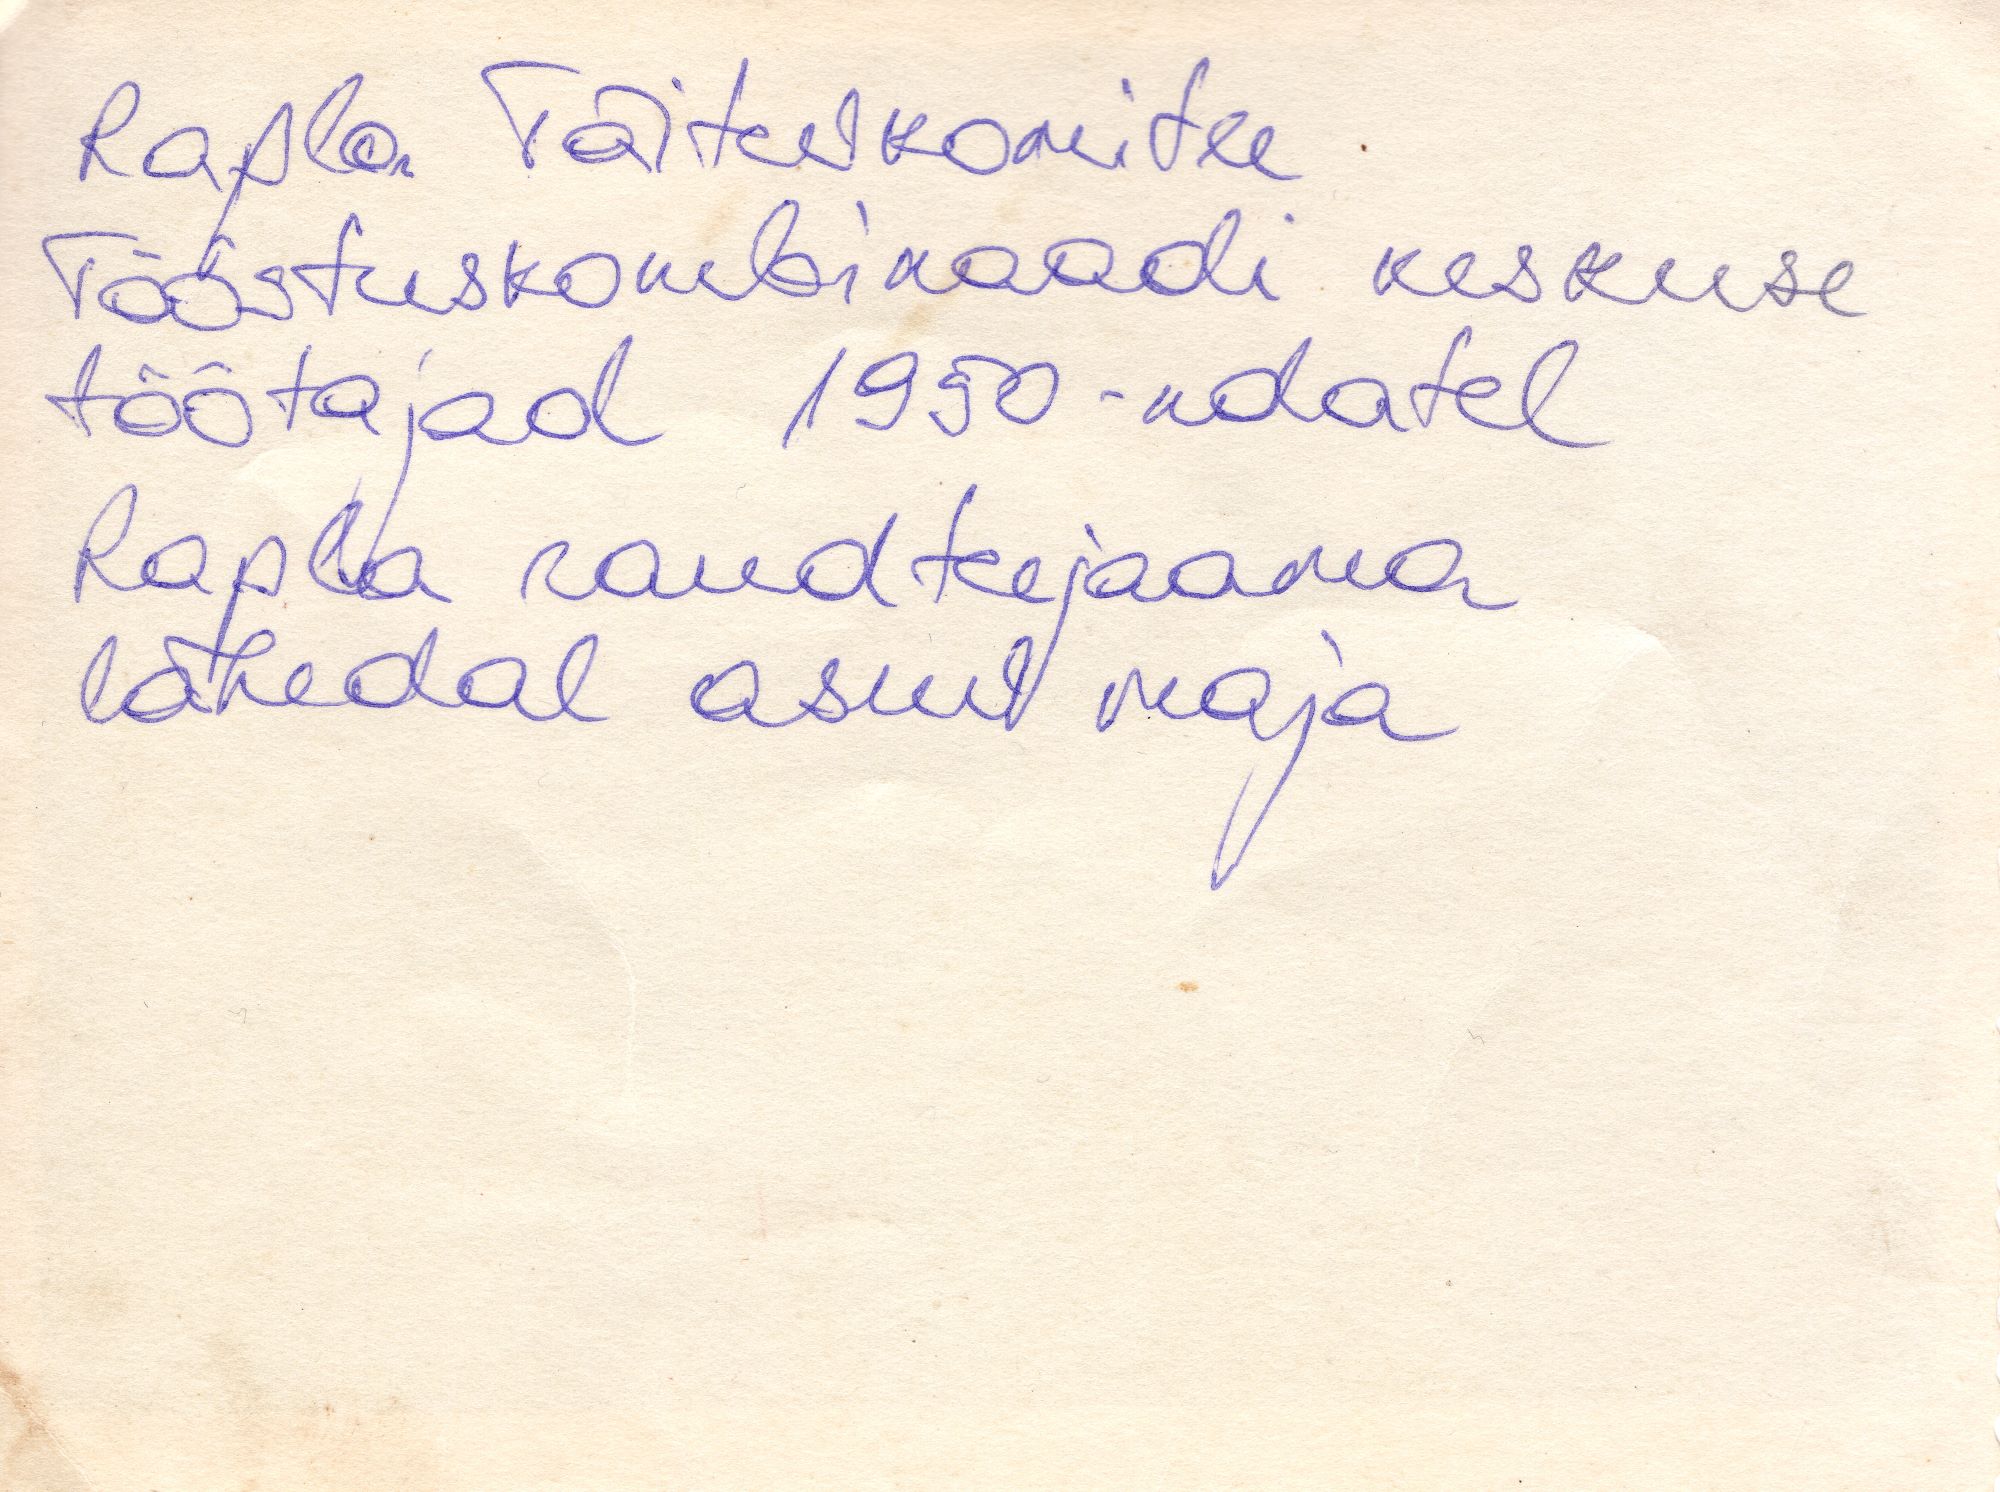 Rapla Täitevkomitee
Tööstuskombinaadi keskuse
töötajad 1950-ndatel
Rapla raudteejaama
lähedal asuv maja